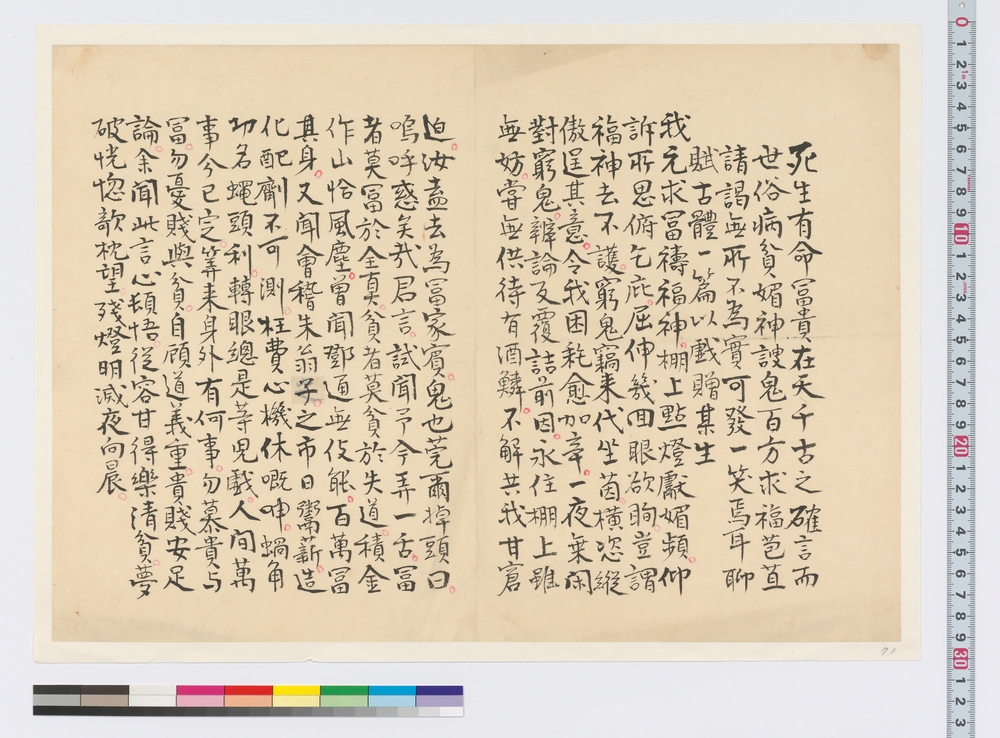 死生有命冨貴在天千古之確言而
世俗病貧媚神諛鬼百方求福苞苴
請謁無所不為實可發一笑焉耳聊
賦古體一篇以戲贈某生
我元求冨禱福神棚上點燈獻媚頻仰
訴所思俯乞庇屈伸幾回眼欲眴豈謂
福神去不護窮鬼竊来代坐茵橫恣縱
傲逞其意令我困耗愈加辛一夜乗閑
對窮鬼辯論反覆詰前因永住棚上雖
無妨嘗無供待有酒鱗不解共我甘窘
迫汝盍去為冨家賓鬼也莞爾掉頭曰
嗚呼惑矣哉君言試聞予今弄一舌冨
者莫冨於全真貧者莫貧於失道積金
作山恰風塵曽聞鄧通無伎能百萬冨
其身又聞會稽朱翁子之市日鬻薪造
化配劑不可測枉費心機休嘅呻蝸角
功名蠅頭利轉眼總是等児戲人间萬
事今已定筭来身外有何事勿慕貴与
冨勿憂賤與貧自顧道義重貴賤安足
論余聞此言心頓悟從容甘得樂清貧夢
破恍惚欹枕望殘燈明滅夜向晨
71